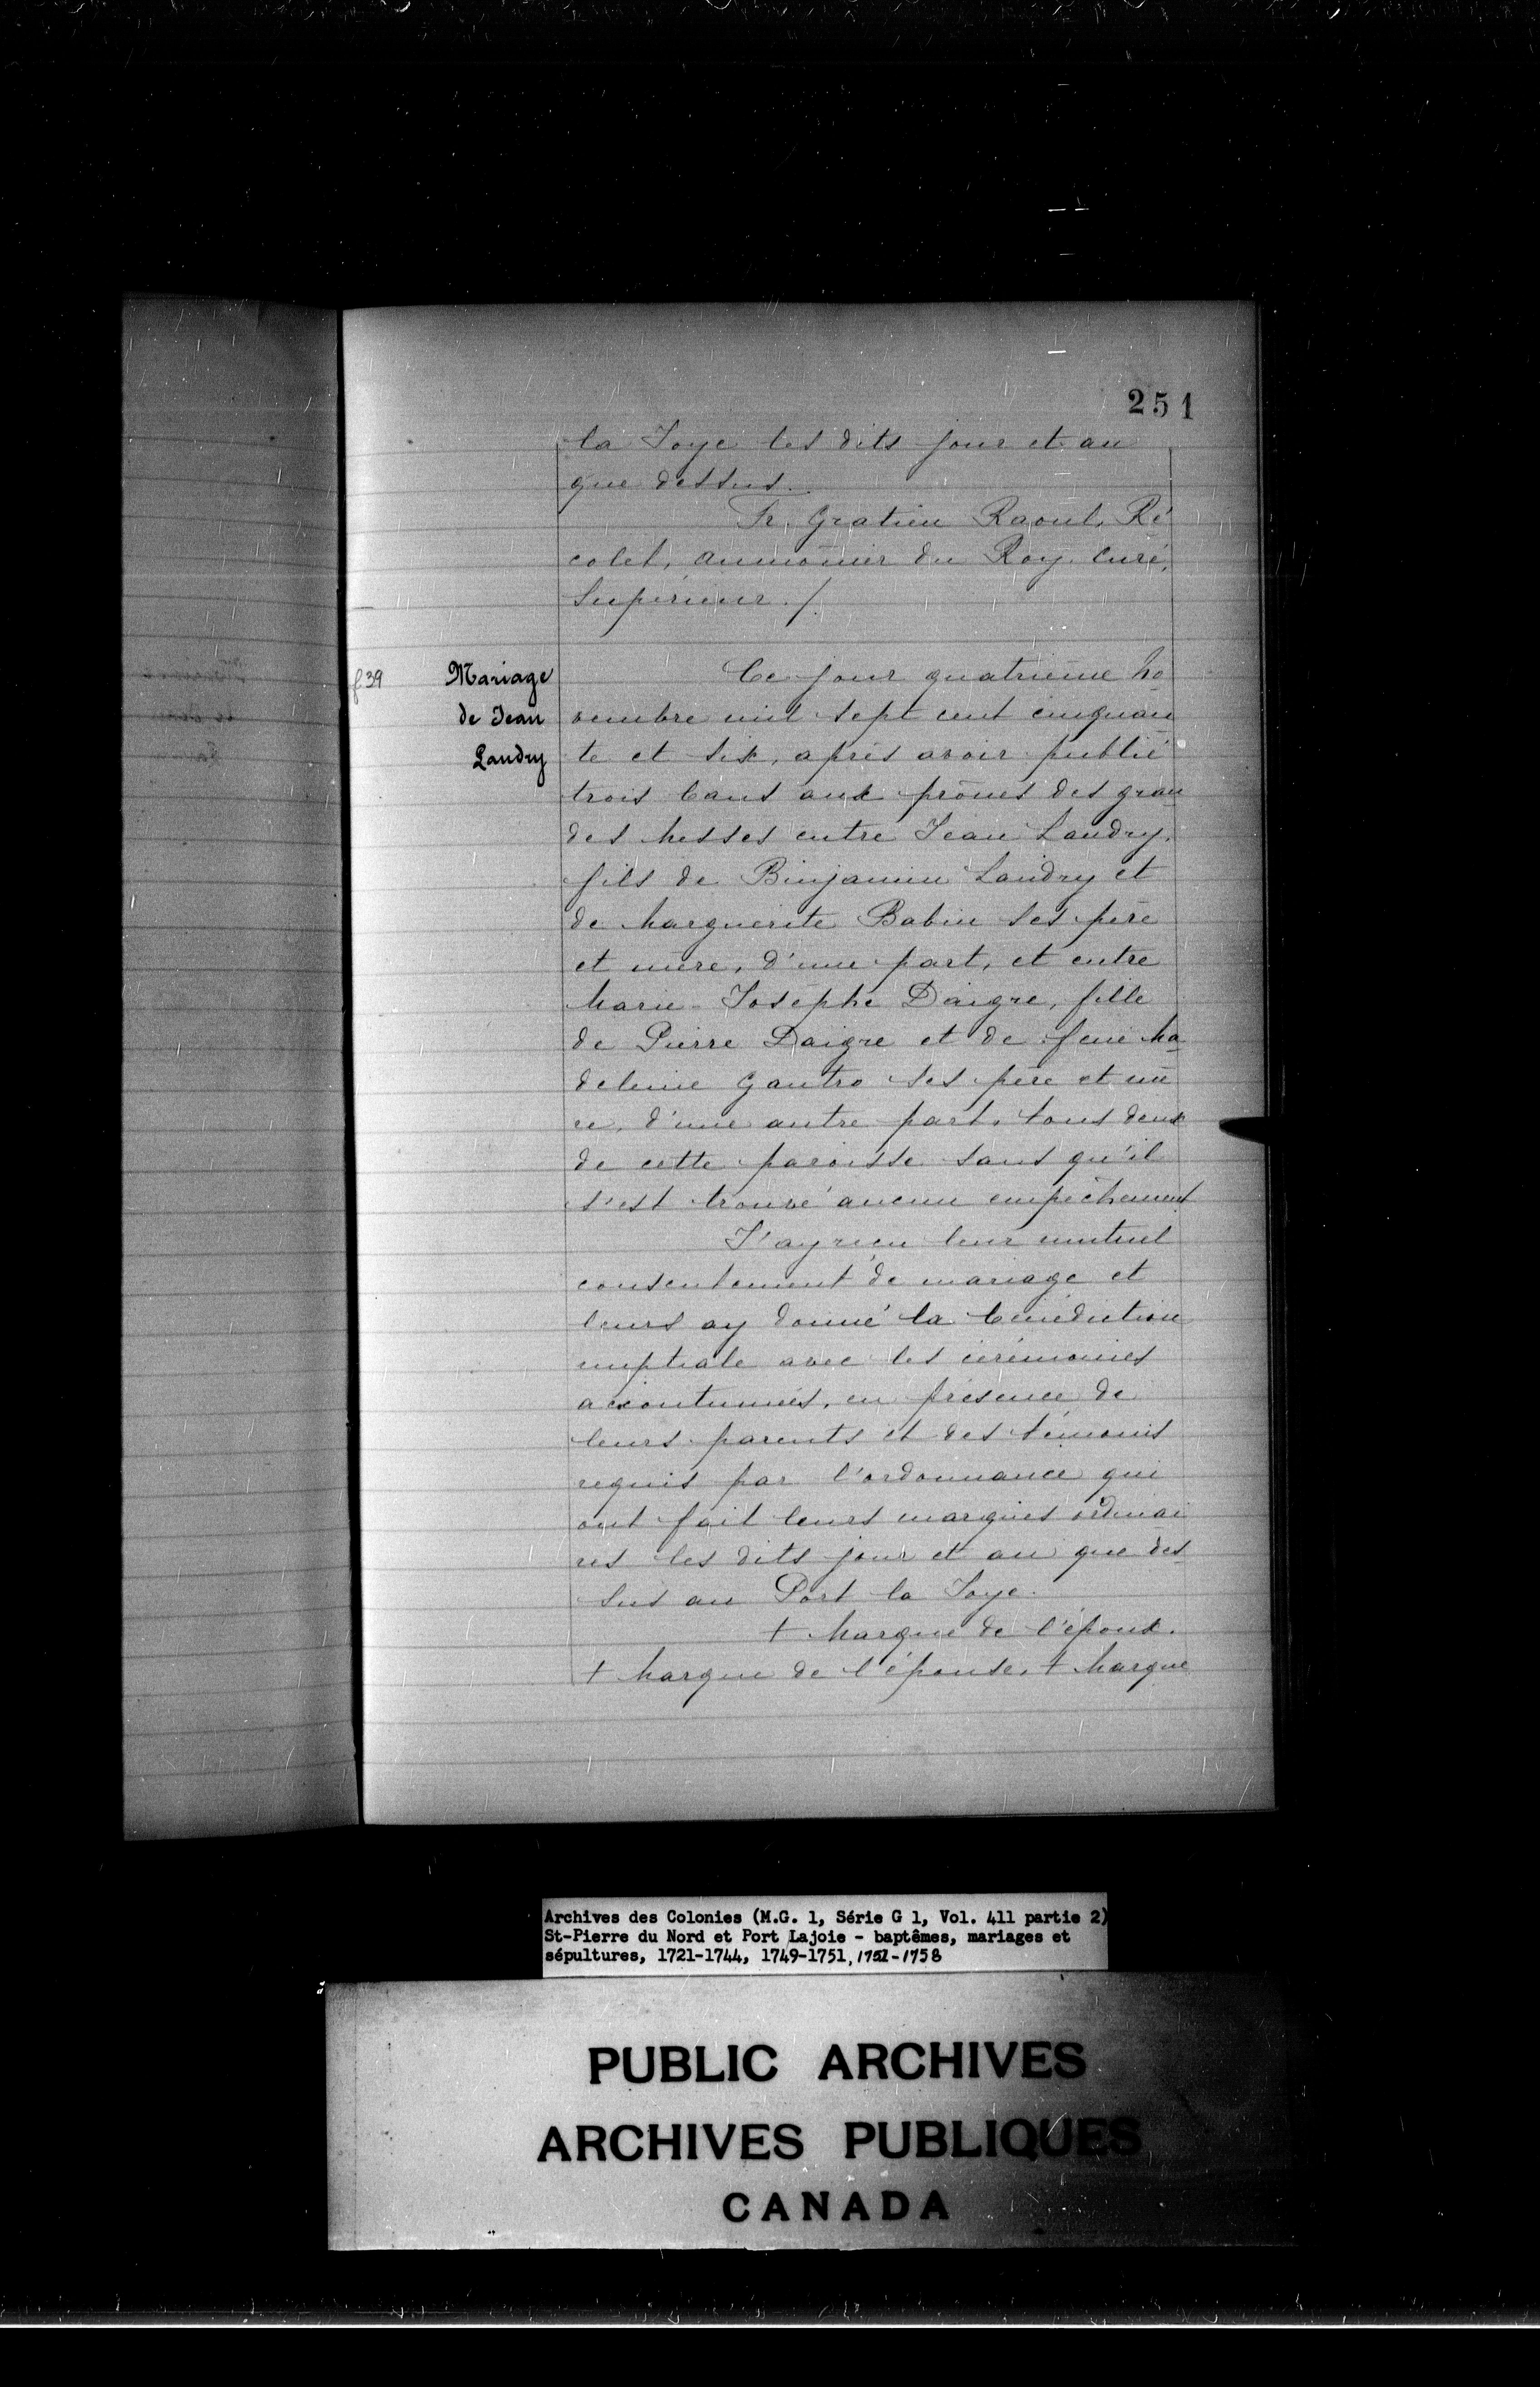 251
la Joye les dits jour et an
que dessus.
Fr. Gratien Raoul, Ré
colet, aumônier du Roy. Curé,
Supérieur./.
f. 39
Mariage
de Jean
Landry
Ce jour quatrième No
vembre mil sept cent cinquan
te et six, après avoir publié
trois bans aux prônes des gran
des Messes entre Jean Landry,
fils de Binjamin Landry et
de Marguerite Babin ses père
et mère, d'une part, et entre
Marie-Josephe Daigre, fille
de Pierre Daigre et de feue Ma
deleine Gautro ses père et mè
re, d'une autre part, tous deux
de cette paroisse sans qu'il
s'est trouvé aucun empêchement
J'ay reçu leur mutuel
consentement de mariage et
leurs ay donné la bénédiction
nuptiale avec les cérémonies
accoutumées, en présence de
leurs parents et des témoins
requis par l'ordonnance qui
ont fait leurs marques ordinai
res les dits jour et an que des
sus au Port la Joye.
+ Marque de l'époux.
+ Marque de l'épouse, + Marque
Archives des Colonies (M.G. 1, Série G 1, Vol. 411 partie 2)
St-Pierre du Nord et Port Lajoie - baptêmes, mariages et
sépultures, 1721-1744, 1749-1751, 1751-1758
PUBLIC ARCHIVES
ARCHIVES PUBLIQUES
CANADA